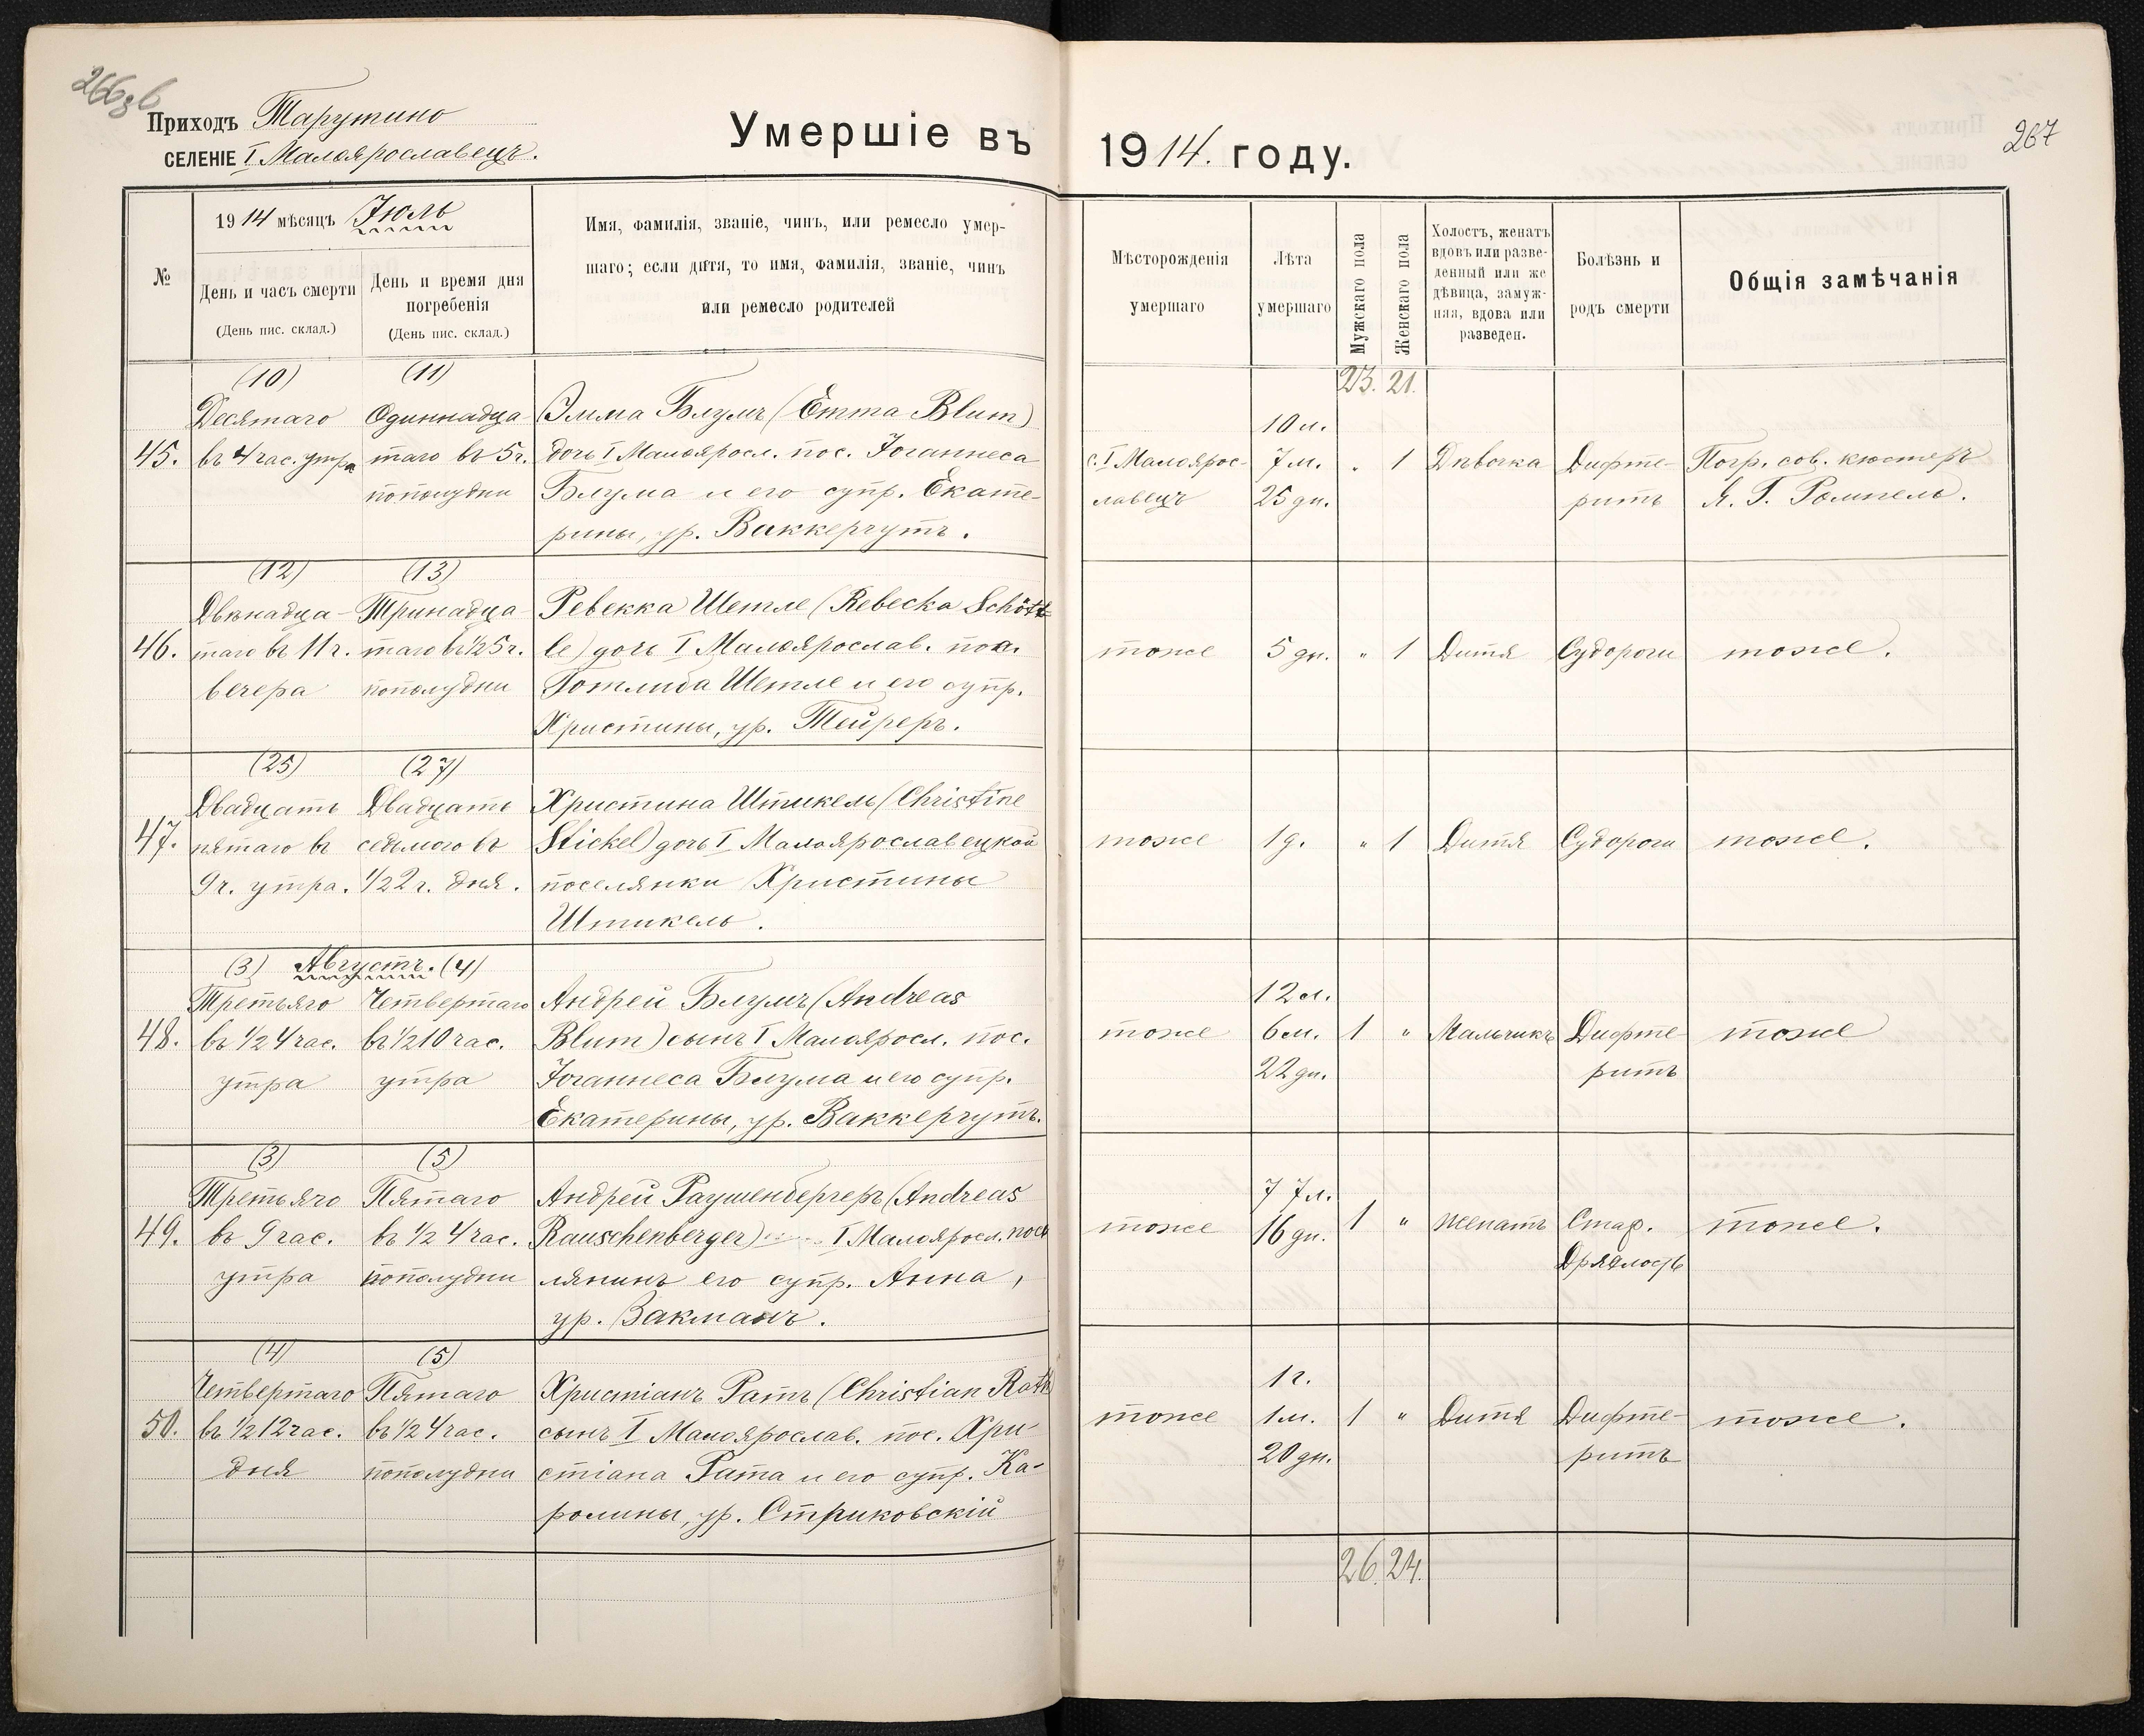 266 зв
267
Приходъ Тарутино
СЕЛЕНІЕ I Малоярославецъ.
Умершіе въ 1914. году.
№
1914 мѣсяцъ Іюль
День и часъ смерти
(День пис. склад.)
День и время дня
погребенія
(День пис. склад.)
Имя, фамилія, званіе, чинъ, или ремесло умер-
шаго; если дитя, то имя, фамилія, званіе, чинъ
или ремесло родителей
Мѣсторожденія
умершаго
Лѣта
умершаго
Мужскаго пола
Женскаго пола
Холостъ, женатъ
вдовъ или разве-
денный или же
дѣвица, замуж-
няя, вдова или
разведен.
Болѣзнь и
родъ смерти
Общія замѣчанія
23. 21.
45.
(10)
Десятаго
въ 4 час. утра
(11)
Одиннадца-
таго въ 5 ч.
пополудни
Эмма Блумъ (Emma Blum)
дочь I Малояросл. пос. Іоганнеса
Блума и его супр. Екате-
рины, ур. Ваккергутъ.
с. I Малоярос-
лавецъ
10 л.
7 м.
25 дн.
" 1
Дѣвочка
Дифте-
ритъ
Погр. сов. кюстеръ
Я. Г. Ромпель.
46.
(12)
Двѣнадца-
таго въ 11 ч.
вечера
(13)
Тринадца-
таго въ 1/2 5 ч.
пополудни
Ревекка Шетле (Rebecka Schött
le) дочь I Малоярослав. пос.
Готлиба Шетле и его супр.
Христины, ур. Тейреръ.
тоже
5 дн.
" 1
Дитя
Судороги
тоже.
47.
(25)
Двадцать
пятаго въ
9 ч. утра.
(27)
Двадцать
седьмого въ
1/2 2 ч. дня.
Христина Штикель (Christine
Stickel) дочь I Малоярославецкой
поселянки Христины
Штикель.
тоже
1 д.
" 1
Дитя
Судороги
тоже.
Августъ.
48.
(3)
Третьяго
въ 1/2 4 час.
утра
(4)
Четвертаго
въ 1/2 10 час.
утра
Андрей Блумъ (Andreas
Blum) сынъ I Малояросл. пос.
Іоганнеса Блума и его супр.
Екатерины, ур. Ваккергутъ.
тоже
12 л.
6 м.
22 дн.
1 "
Мальчикъ
Дифте-
ритъ
тоже
49.
(3)
Третьяго
въ 9 час.
утра
(5)
Пятаго
въ 1/2 4 час.
пополудни
Андрей Раушенбергеръ (Andreas
Rauschenberger) I Малояросл. посе
лянинъ его супр. Анна,
ур. Закманъ.
тоже
77 л.
16 дн.
1 "
женатъ
Стар.
Дряхлость
тоже.
50.
(4)
Четвертаго
въ 1/2 12 час.
дня
(5)
Пятаго
въ 1/2 4 час.
пополудни
Христіанъ Ратъ (Christian Rath
сынъ I Малоярослав. пос. Хри
стіана Рата и его супр. Ка-
ролины, ур. Стриковскій
тоже
1 г.
1 м.
20 дн.
1 "
Дитя
Дифте-
ритъ
тоже.
26. 24.